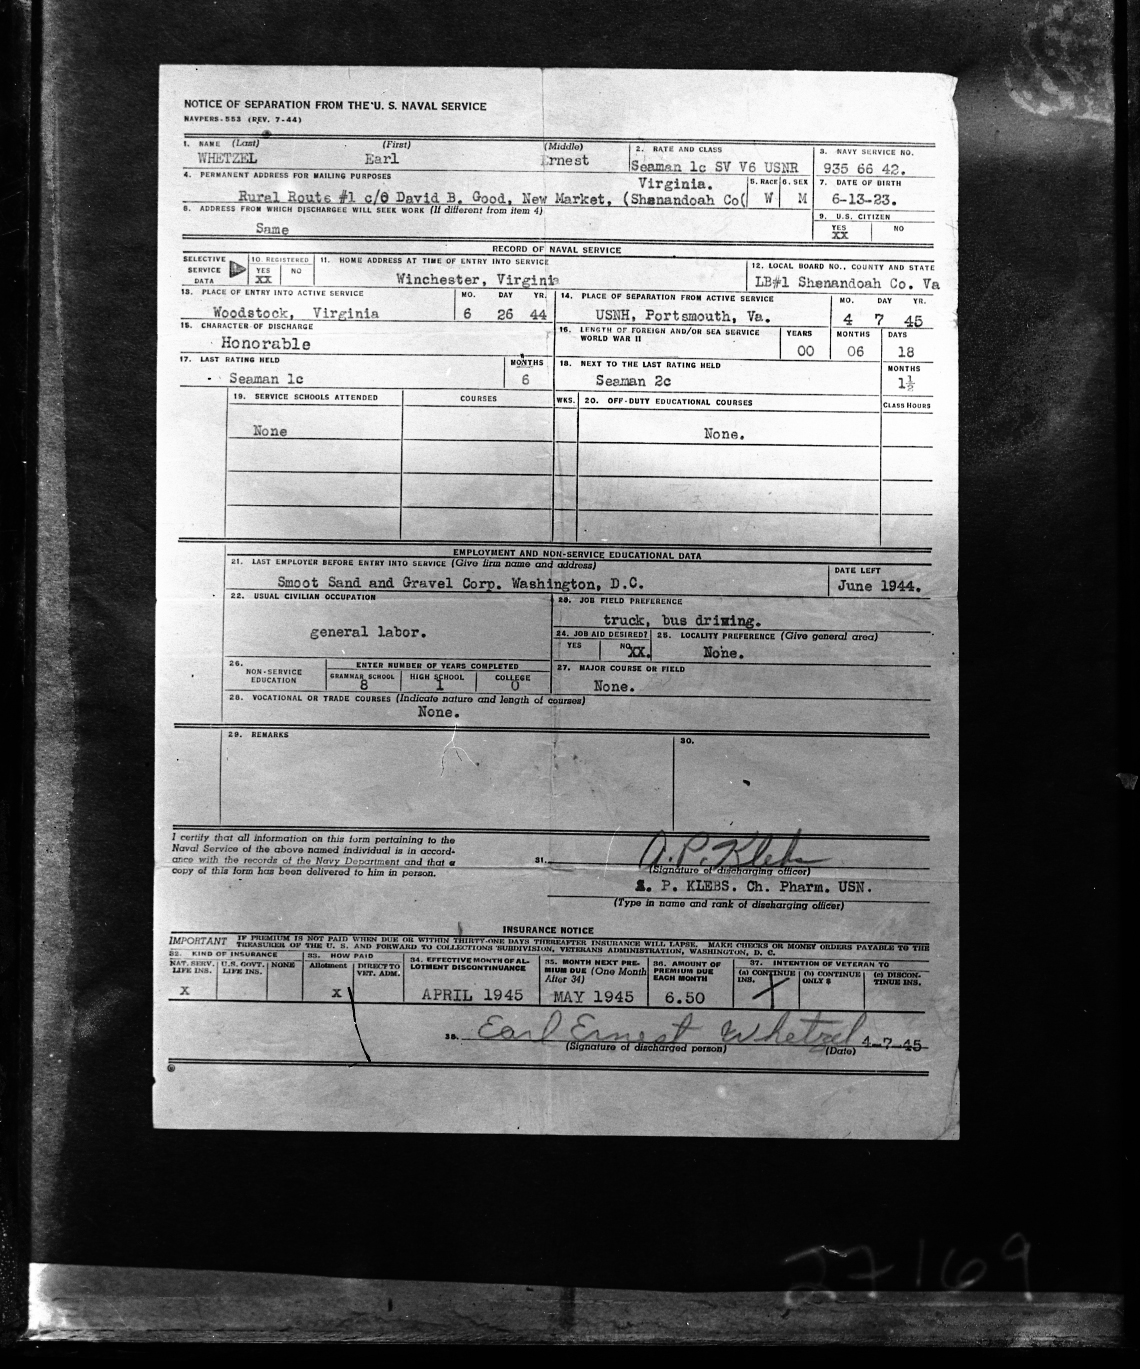 NOTICE OF SEPARATION FROM THE U. S. NAVAL SERVICE
NAVPERS-553 (REV. 7-44)
1. NAME (Last) (First) (Middle) 2. RATE AND CLASS 3. NAVY SERVICE NO.
WHETZEL Earl Ernest Seaman 1c SV V6 USNR 935 66 42.
4. PERMANENT ADDRESS FOR MAILING PURPOSES 5. RACE 6. SEX 7. DATE OF BIRTH
Virginia.
Rural Route #1 c/o David B. Good, New Market, (Shenandoah Co( W M 6-13-23.
8. ADDRESS FROM WHICH DISCHARGEE WILL SEEK WORK (If different from item 4) 9. U.S. CITIZEN
Same YES XX NO
RECORD OF NAVAL SERVICE
SELECTIVE SERVICE DATA 10. REGISTERED YES XX NO 11. HOME ADDRESS AT TIME OF ENTRY INTO SERVICE 12. LOCAL BOARD NO., COUNTY AND STATE
Winchester, Virginia LB#1 Shenandoah Co. Va
13. PLACE OF ENTRY INTO ACTIVE SERVICE MO. DAY YR. 14. PLACE OF SEPARATION FROM ACTIVE SERVICE MO. DAY YR.
Woodstock, Virginia 6 26 44 USNH, Portsmouth, Va. 4 7 45
15. CHARACTER OF DISCHARGE 16. LENGTH OF FOREIGN AND/OR SEA SERVICE WORLD WAR II YEARS MONTHS DAYS
Honorable 00 06 18
17. LAST RATING HELD MONTHS 18. NEXT TO THE LAST RATING HELD MONTHS
Seaman 1c 6 Seaman 2c 1½
19. SERVICE SCHOOLS ATTENDED COURSES WKS. 20. OFF-DUTY EDUCATIONAL COURSES CLASS HOURS
None None.
EMPLOYMENT AND NON-SERVICE EDUCATIONAL DATA
21. LAST EMPLOYER BEFORE ENTRY INTO SERVICE (Give firm name and address) DATE LEFT
Smoot Sand and Gravel Corp. Washington, D.C. June 1944.
22. USUAL CIVILIAN OCCUPATION 23. JOB FIELD PREFERENCE
general labor. truck, bus driving.
24. JOB AID DESIRED? 25. LOCALITY PREFERENCE (Give general area)
YES NO XX. None.
26. NON-SERVICE EDUCATION ENTER NUMBER OF YEARS COMPLETED 27. MAJOR COURSE OR FIELD
GRAMMAR SCHOOL HIGH SCHOOL COLLEGE
8 1 0 None.
28. VOCATIONAL OR TRADE COURSES (Indicate nature and length of courses)
None.
29. REMARKS 30.
I certify that all information on this form pertaining to the
Naval Service of the above named individual is in accord-
ance with the records of the Navy Department and that a
copy of this form has been delivered to him in person.
31. A. P. Klebs
(Signature of discharging officer)
A. P. KLEBS. Ch. Pharm. USN.
(Type in name and rank of discharging officer)
INSURANCE NOTICE
IMPORTANT IF PREMIUM IS NOT PAID WHEN DUE OR WITHIN THIRTY-ONE DAYS THEREAFTER INSURANCE WILL LAPSE. MAKE CHECKS OR MONEY ORDERS PAYABLE TO THE
TREASURER OF THE U. S. AND FORWARD TO COLLECTIONS SUBDIVISION, VETERANS ADMINISTRATION, WASHINGTON, D. C.
32. KIND OF INSURANCE 33. HOW PAID 34. EFFECTIVE MONTH OF ALLOTMENT DISCONTINUANCE 35. MONTH NEXT PREMIUM DUE (One Month After 34) 36. AMOUNT OF PREMIUM DUE EACH MONTH 37. INTENTION OF VETERAN TO
NAT. SERV. LIFE INS. U.S. GOVT. LIFE INS. NONE Allotment DIRECT TO VET. ADM. (a) CONTINUE INS. (b) CONTINUE ONLY $ (c) DISCONTINUE INS.
X X APRIL 1945 MAY 1945 6.50
38. Earl Ernest Whetzel 4-7-45
(Signature of discharged person) (Date)
27169